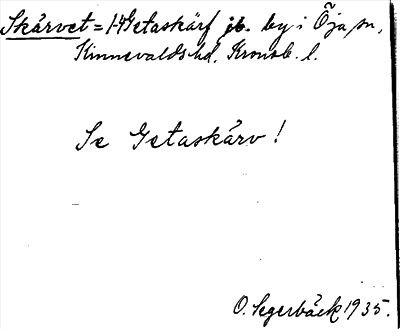 Skårvet = 1-4 Getaskärf jb. by i Öja sn,
Kinnevalds hd, Kronob. l.
Se Getaskärv!
O. Segerbäck 1935.